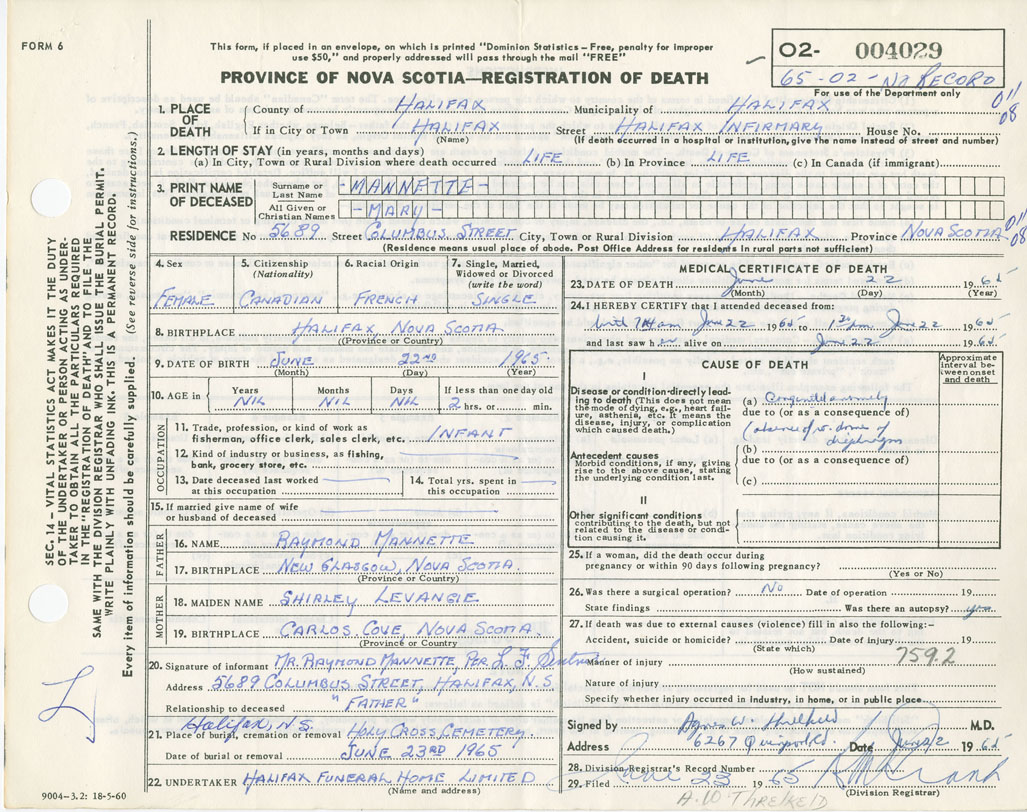 FORM 6
This form, if placed in an envelope, on which is printed "Dominion Statistics – Free, penalty for improper
use $50," and properly addressed will pass through the mail "FREE"
PROVINCE OF NOVA SCOTIA—REGISTRATION OF DEATH
02- 004029
65-02-No RECORD
For use of the Department only
011
08
1. PLACE OF DEATH
County of HALIFAX Municipality of HALIFAX
If in City or Town HALIFAX Street HALIFAX INFIRMARY House No.
(Name) (If death occurred in a hospital or institution, give the name instead of street and number)
2. LENGTH OF STAY (in years, months and days)
(a) In City, Town or Rural Division where death occurred LIFE (b) In Province LIFE (c) In Canada (if immigrant)
3. PRINT NAME OF DECEASED
Surname or Last Name -MANNETTE-
All Given or Christian Names -MARY-
RESIDENCE No 5689 Street COLUMBUS STREET City, Town or Rural Division HALIFAX Province NOVA SCOTIA
011
08
(Residence means usual place of abode. Post Office Address for residents in rural parts no sufficient)
4. Sex
FEMALE
5. Citizenship (Nationality)
CANADIAN
6. Racial Origin
FRENCH
7. Single, Married, Widowed or Divorced (write the word)
SINGLE
8. BIRTHPLACE HALIFAX NOVA SCOTIA
(Province or Country)
9. DATE OF BIRTH JUNE 22ND 1965
(Month) (Day) (Year)
10. AGE in
Years NIL
Months NIL
Days NIL
If less than one day old
2 hrs. or min.
OCCUPATION
11. Trade, profession, or kind of work as
fisherman, office clerk, sales clerk, etc. INFANT
12. Kind of industry or business, as fishing,
bank, grocery store, etc.
13. Date deceased last worked
at this occupation
14. Total yrs. spent in
this occupation
15. If married give name of wife
or husband of deceased
FATHER
16. NAME RAYMOND MANNETTE
17. BIRTHPLACE NEW GLASGOW, NOVA SCOTIA
(Province or Country)
MOTHER
18. MAIDEN NAME SHIRLEY LEVANGIE
19. BIRTHPLACE CARLOS COVE, NOVA SCOTIA.
(Province or Country)
20. Signature of informant MR. RAYMOND MANNETTE, PER L. F.
Address 5689 COLUMBUS STREET, HALIFAX, N.S.
Relationship to deceased "FATHER"
Halifax, N.S.
21. Place of burial, cremation or removal HOLY CROSS CEMETERY.
Date of burial or removal JUNE 23RD 1965
22. UNDERTAKER HALIFAX FUNERAL HOME LIMITED
(Name and address)
9004—3.2: 18-5-60
MEDICAL CERTIFICATE OF DEATH
23. DATE OF DEATH June 22 1965
(Month) (Day) (Year)
24. I HEREBY CERTIFY that I attended deceased from:
June 22 1965 to June 22 1965
and last saw her alive on June 22 1965
CAUSE OF DEATH
Approximate interval between onset and death
I
Disease or condition directly leading to death (This does not mean the mode of dying, e.g., heart failure, asthenia, etc. It means the disease, injury, or complication which caused death.)
(a) Congenital anomaly
due to (or as a consequence of)
(absence of dome of
diaphragm
(b)
due to (or as a consequence of)
Antecedent causes
Morbid conditions, if any, giving rise to the above cause, stating the underlying condition last.
(c)
II
Other significant conditions
contributing to the death, but not related to the disease or condition causing it.
25. If a woman, did the death occur during
pregnancy or within 90 days following pregnancy?
(Yes or No)
26. Was there a surgical operation? No Date of operation 19
State findings Was there an autopsy? yes
27. If death was due to external causes (violence) fill in also the following:-
Accident, suicide or homicide? Date of injury 19
(State which)
759.2
Manner of injury
(How sustained)
Nature of injury
Specify whether injury occurred in industry, in home, or in public place
Signed by Agnes W. Threlkeld M.D.
Address 6267 Quinpool Rd. Date June 22 1965
28. Division Registrar's Record Number
29. Filed June 23 1965
(Division Registrar)
A. W. THRELKELD
SEC. 14 – VITAL STATISTICS ACT MAKES IT THE DUTY
OF THE UNDERTAKER OR PERSON ACTING AS UNDER-
TAKER TO OBTAIN ALL THE PARTICULARS REQUIRED
IN THE "REGISTRATION OF DEATH" AND TO FILE THE
SAME WITH THE DIVISION REGISTRAR WHO SHALL ISSUE THE BURIAL PERMIT.
WRITE PLAINLY WITH UNFADING INK. THIS IS A PERMANENT RECORD.
Every item of information should be carefully supplied. (See reverse side for instructions.)